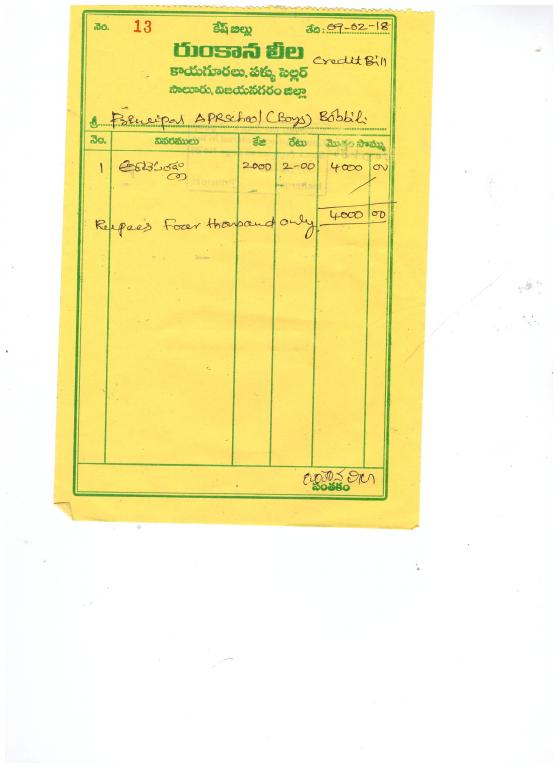 నెం. 13 కేష్ బిల్లు తేది: 09-02-18
రుంకాన లీల
Credit Bill
కాయగూరలు, పళ్ళు సెల్లర్
సాలూరు, విజయనగరం జిల్లా
శ్రీ Principal APR School (Boys) Bobbili
నెం. వివరములు కేజి రేటు మొత్తం సొమ్ము
1 అరటిపండ్లు 2000 2-00 4000 00
4000 00
Rupees Four thousand only
రుంకాన లీల
సంతకం